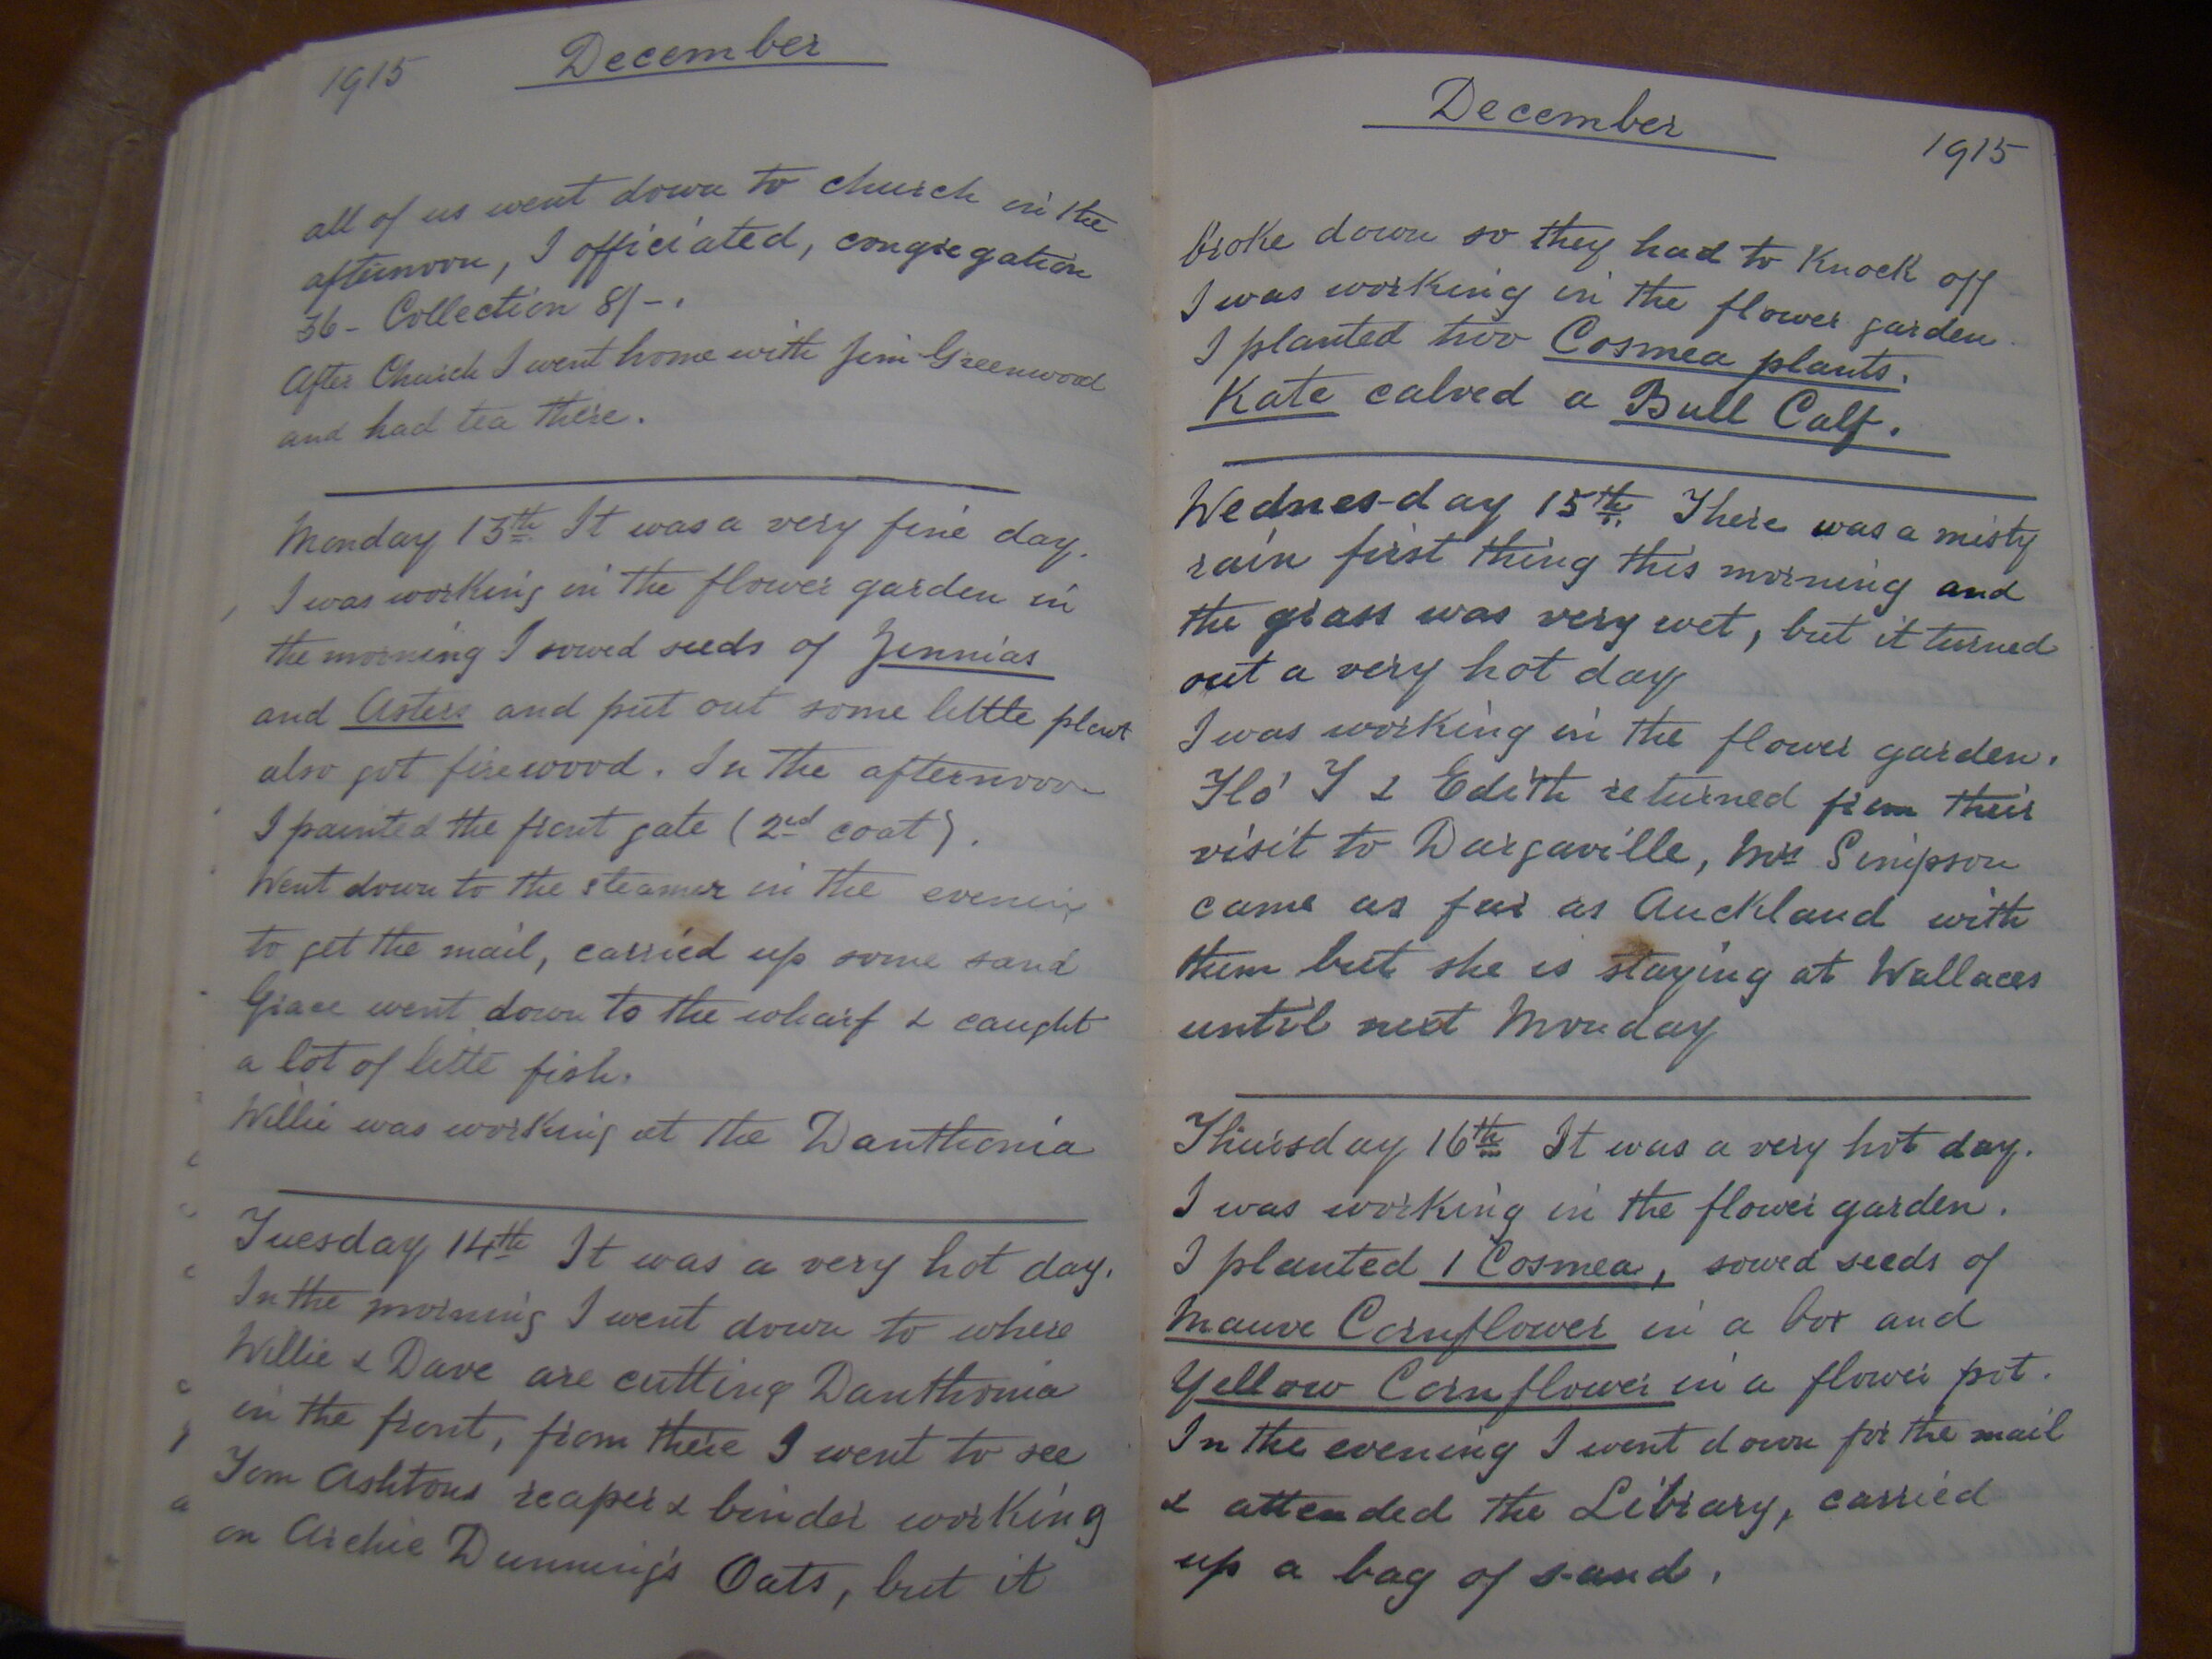 1915 December
all of us went down to church in the
afternoon, I officiated, congregation
36 - Collection 8/-.
After Church I went home with Jim Greenwood
and had tea there.
Monday 13th It was a very fine day.
I was working in the flower garden in
the morning I sowed seeds of Zennias
and Asters and put out some little plant
also got firewood. In the afternoon
I painted the front gate (2nd coat).
Went down to the steamer in the evening
to get the mail, carried up some sand
Grace went down to the wharf & caught
a lot of litte fish.
Willie was working at the Danthonia
Tuesday 14th It was a very hot day.
In the morning I went down to where
Willie & Dave are cutting Danthonia
in the front, from there I went to see
Tom Ashtons reaper & binder working
on Archie Dunning's Oats, but it
December 1915
broke down so they had to knock off
I was working in the flower garden
I planted two Cosmea plants.
Kate calved a Bull Calf.
Wednes-day 15th. There was a misty
rain first thing this morning and
the grass was very wet, but it turned
out a very hot day
I was working in the flower garden.
Flo' Y & Edith returned from their
visit to Dargaville, Mrs Simpson
came as far as Auckland with
them but she is staying at Wallaces
until next Monday
Thursday 16th It was a very hot day.
I was working in the flower garden.
I planted 1 Cosmea, sowed seeds of
Mauve Cornflower in a box and
Yellow Cornflower in a flower pot.
In the evening I went down for the mail
& attended the Library, carried
up a bag of sand.